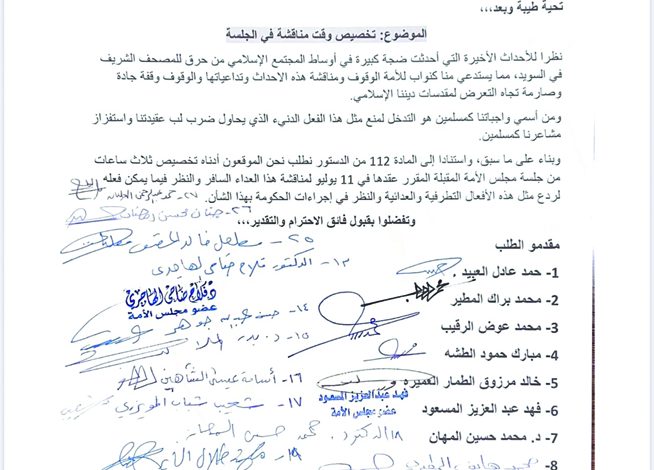 تحية طيبة وبعد،،،
الموضوع: تخصيص وقت مناقشة في الجلسة
نظرا للأحداث الأخيرة التي أحدثت ضجة كبيرة في أوساط المجتمع الإسلامي من حرق للمصحف الشريف
في السويد، مما يستدعي منا كنواب للأمة الوقوف ومناقشة هذه الاحداث وتداعياتها والوقوف وقفة جادة
وصارمة تجاه التعرض لمقدسات ديننا الإسلامي.
ومن أسمي واجباتنا كمسلمين هو التدخل لمنع مثل هذا الفعل الدنيء الذي يحاول ضرب لب عقيدتنا واستفزاز
مشاعرنا كمسلمين.
وبناء على ما سبق، واستنادا إلى المادة 112 من الدستور نطلب نحن الموقعون أدناه تخصيص ثلاث ساعات
من جلسة مجلس الأمة المقبلة المقرر عقدها في 11 يوليو لمناقشة هذا العداء السافر والنظر فيما يمكن فعله
لردع مثل هذه الأفعال التطرفية والعدائية والنظر في إجراءات الحكومة بهذا الشأن.
٢٧-
٢٦-
وتفضلوا بقبول فائق الاحترام والتقدير،،،
٢٥-
مقدمو الطلب
١٣- الدكتور فلاح ضاحي الهاجري
1- حمد عادل العبيد .
د. فلاح ضاحي الهاجري
عضو مجلس الأمة
2- محمد براك المطير
١٤- حسن جوهر
3- محمد عوض الرقيب
١٥- د. بدر الملا
4- مبارك حمود الطشه
١٦- أسامة عيسى الشاهين
5- خالد مرزوق الطمار العميره
١٧- شعيب شباب المويزري
فهد عبدالعزيز المسعود
عضو مجلس الأمة
6- فهد عبد العزيز المسعود
١٨- الدكتور
7- د. محمد حسين المهان
١٩-
8-